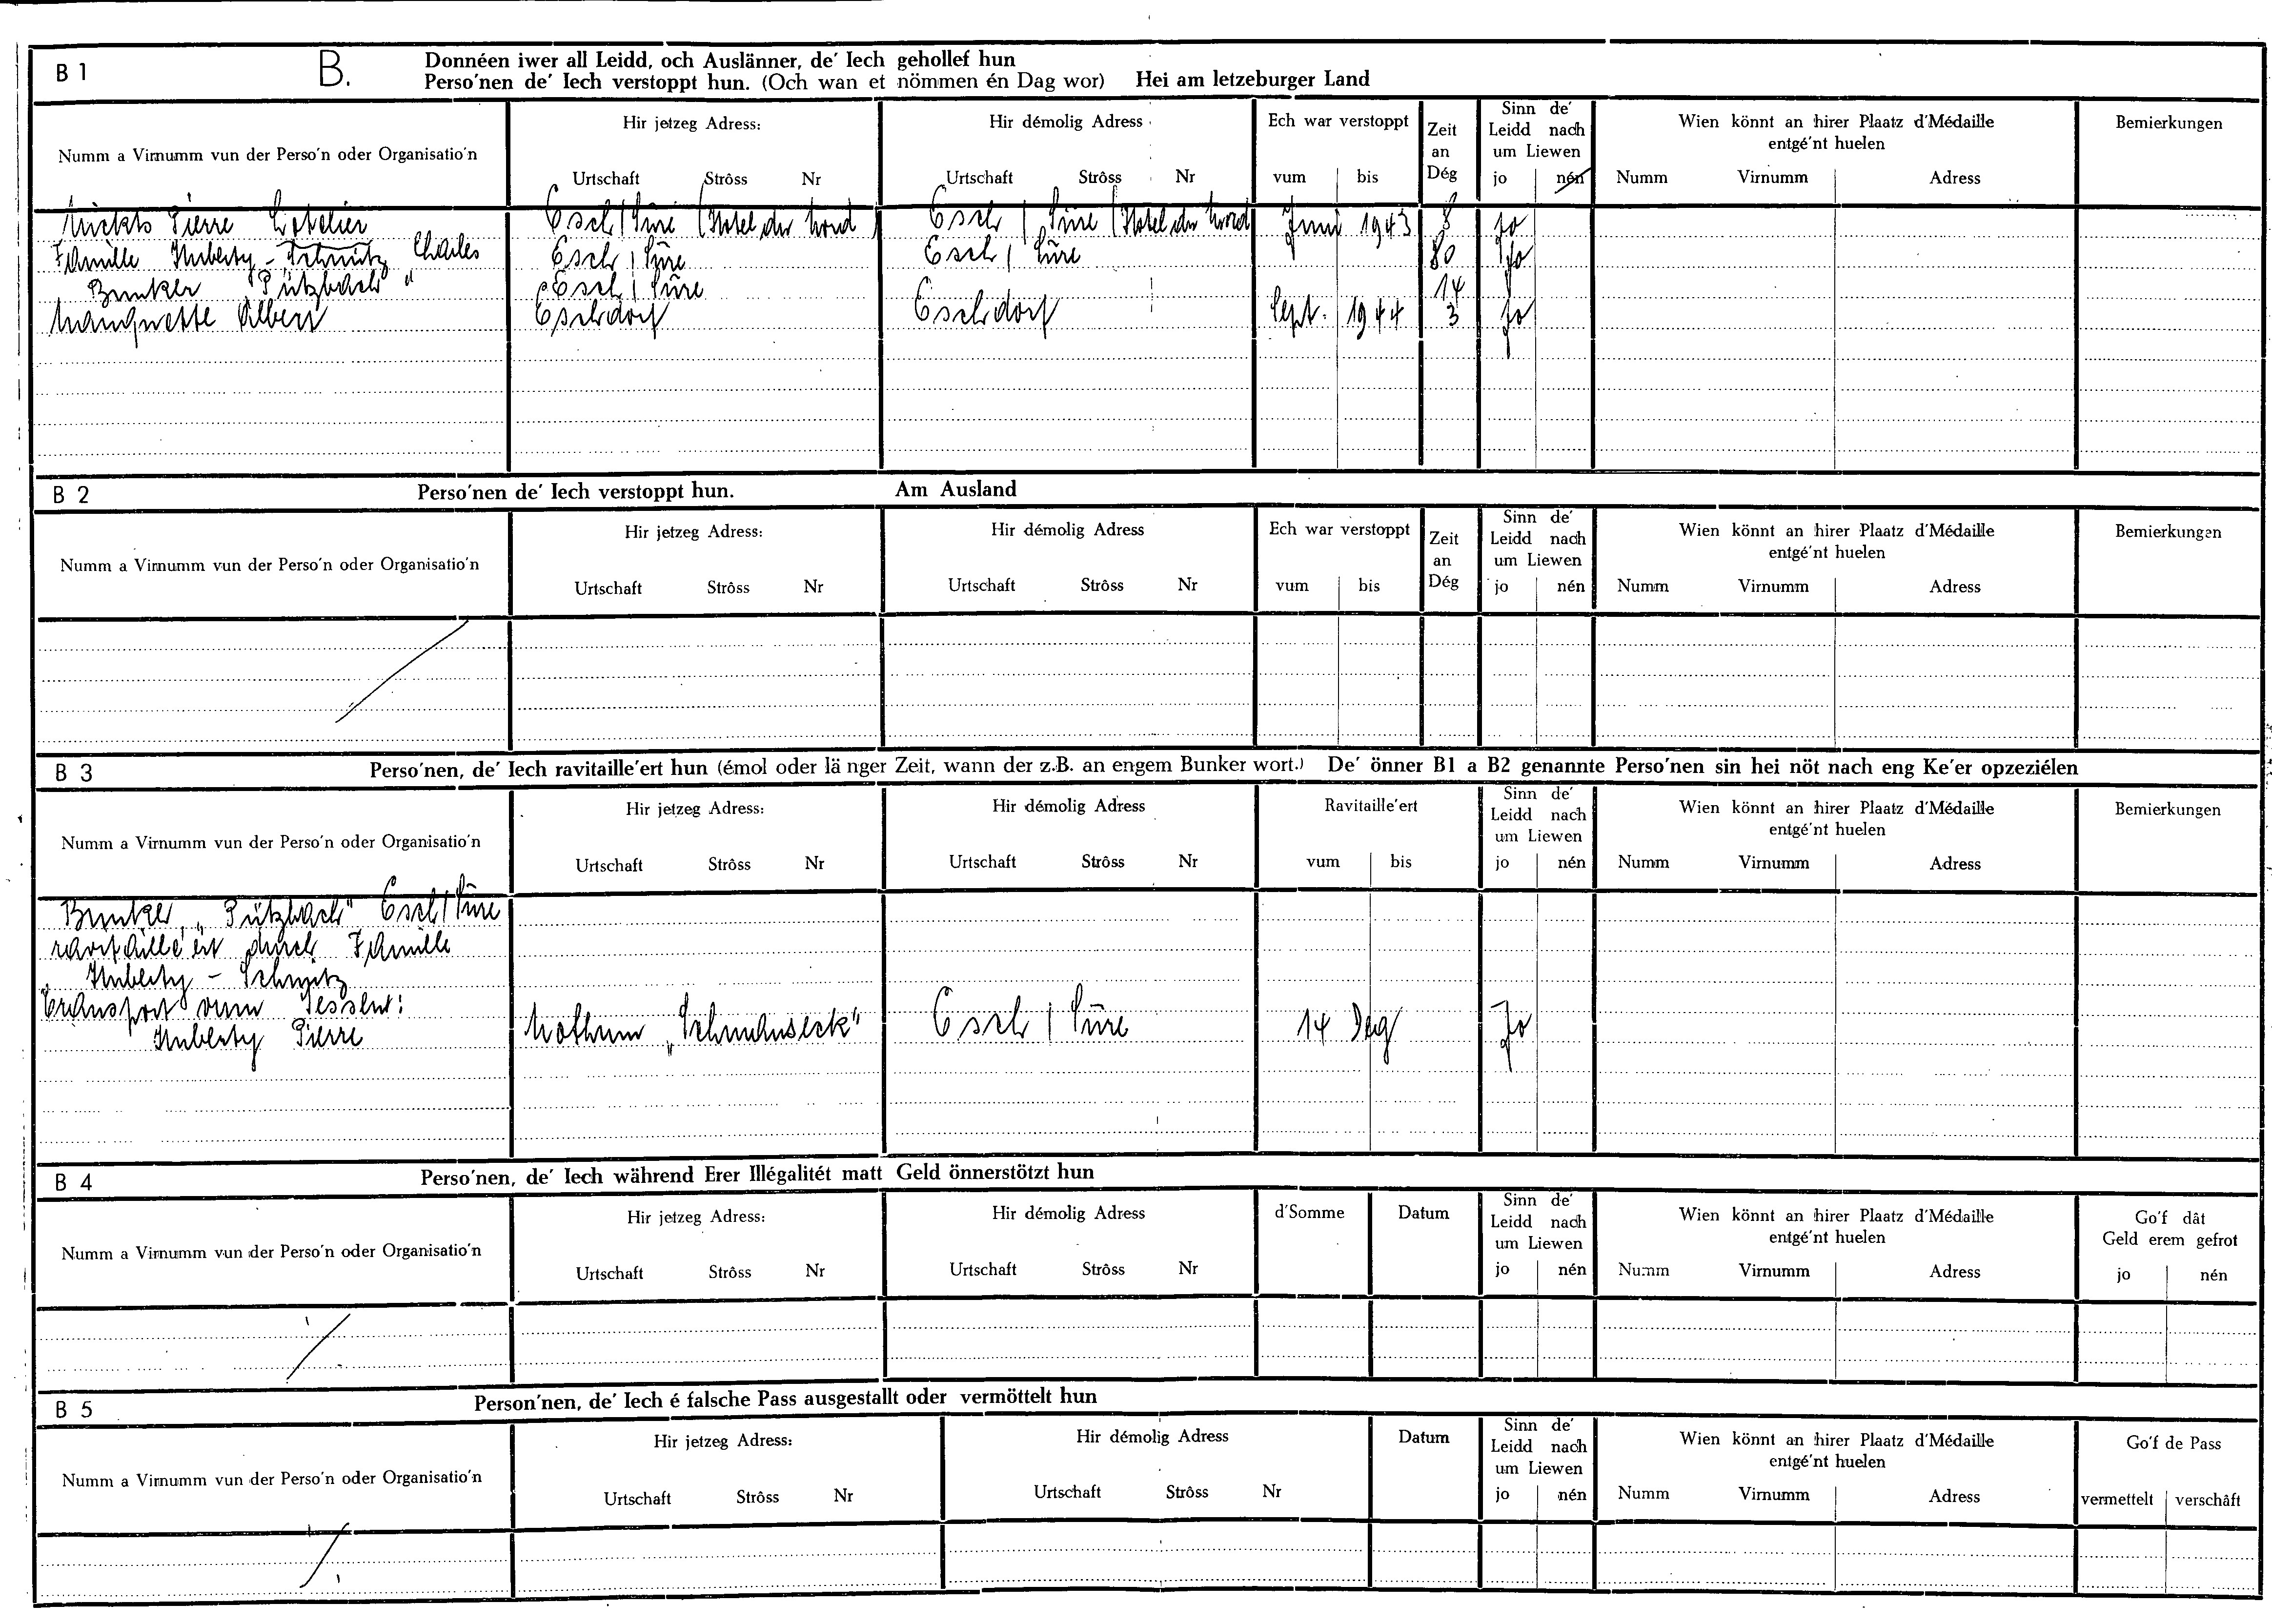 B 1 B. Donnéen iwer all Leidd, och Auslänner, de' Iech gehollef hun
Perso'nen de' Iech verstoppt hun. (Och wan et nömmen én Dag wor) Hei am letzeburger Land
Numm a Virnumm vun der Perso'n oder Organisatio'n Hir jetzeg Adress: Urtschaft Strôss Nr Hir démolig Adress Urtschaft Strôss Nr Ech war verstoppt vum bis Zeit an Dég Sinn de' Leidd nach um Liewen jo nén Wien könnt an hirer Plaatz d'Médaille entgé'nt huelen Numm Virnumm Adress Bemierkungen
Pierre Hotelier Esch / Sûre (Hotel du Nord) Esch / Sûre (Hotel du Nord Juni 1943 8 Jo
Famille Huberty - Schmitz Charles Esch / Sûre Esch / Sûre 80 Jo
Bunker "Pützbach" Esch / Sûre 14
Manquette Albert Eschdorf Eschdorf Sept. 1944 3 Jo
B 2 Perso'nen de' Iech verstoppt hun. Am Ausland
Numm a Virnumm vun der Perso'n oder Organisatio'n Hir jetzeg Adress: Urtschaft Strôss Nr Hir démolig Adress Urtschaft Strôss Nr Ech war verstoppt vum bis Zeit an Dég Sinn de' Leidd nach um Liewen jo nén Wien könnt an hirer Plaatz d'Médaille entgé'nt huelen Numm Virnumm Adress Bemierkungen
B 3 Perso'nen, de' Iech ravitaille'ert hun (émol oder länger Zeit, wann der z.B. an engem Bunker wort.) De' önner B1 a B2 genannte Perso'nen sin hei nöt nach eng Ke'er opzeziélen
Numm a Virnumm vun der Perso'n oder Organisatio'n Hir jetzeg Adress: Urtschaft Strôss Nr Hir démolig Adress Urtschaft Strôss Nr Ravitaille'ert vum bis Sinn de' Leidd nach um Liewen jo nén Wien könnt an hirer Plaatz d'Médaille entgé'nt huelen Numm Virnumm Adress Bemierkungen
Bunker „Pützbach" Esch / Sûre
ravitaille'ert durch Famille
Huberty - Schmitz
Transport vum Iessen:
Huberty Pierre Nothum „Schmanseck" Esch / Sûre 14 Deg Jo
B 4 Perso'nen, de' Iech während Erer Illégalitét matt Geld önnerstötzt hun
Numm a Virnumm vun der Perso'n oder Organisatio'n Hir jetzeg Adress: Urtschaft Strôss Nr Hir démolig Adress Urtschaft Strôss Nr d'Somme Datum Sinn de' Leidd nach um Liewen jo nén Wien könnt an hirer Plaatz d'Médaille entgé'nt huelen Numm Virnumm Adress Go'f dât Geld erem gefrot jo nén
B 5 Person'nen, de' Iech é falsche Pass ausgestallt oder vermöttelt hun
Numm a Virnumm vun der Perso'n oder Organisatio'n Hir jetzeg Adress: Urtschaft Strôss Nr Hir démolig Adress Urtschaft Strôss Nr Datum Sinn de' Leidd nach um Liewen jo nén Wien könnt an hirer Plaatz d'Médaille entgé'nt huelen Numm Virnumm Adress Go'f de Pass vermettelt verschâft